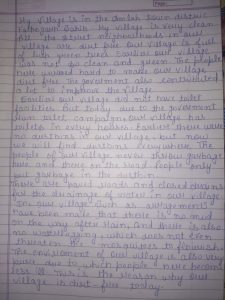 My village is in the
village. My village is very clean.
All the street neighbourhoods in our
village are dust free. Our village is full
with green trees. Earlier our village
was not so clean and green. The people
here worked hard to make our village
dust free. The government also contributed
a lot to improve the village.
Earlier our village did not have toilet
facilities but today due to the government
clean toilet campaigns our village has
toilets in every houses. Earlier there were
no dustbins in our village but now
we will find dustbins everywhere. The
people of our village never throw garbage
here and there on the road. People only
put garbage in the dustbin.
There are paved roads and closed drains
for the drainage of water in our village.
In our village such arrangements
have been made that there is no mud
on the way after rain, and there is also
no waterlogging which does not even
threaten the mosquitoes to flourish.
The environment of our village is also very
pure, due to which people here become
less ill. This is the reason why our
village is dust-free today.